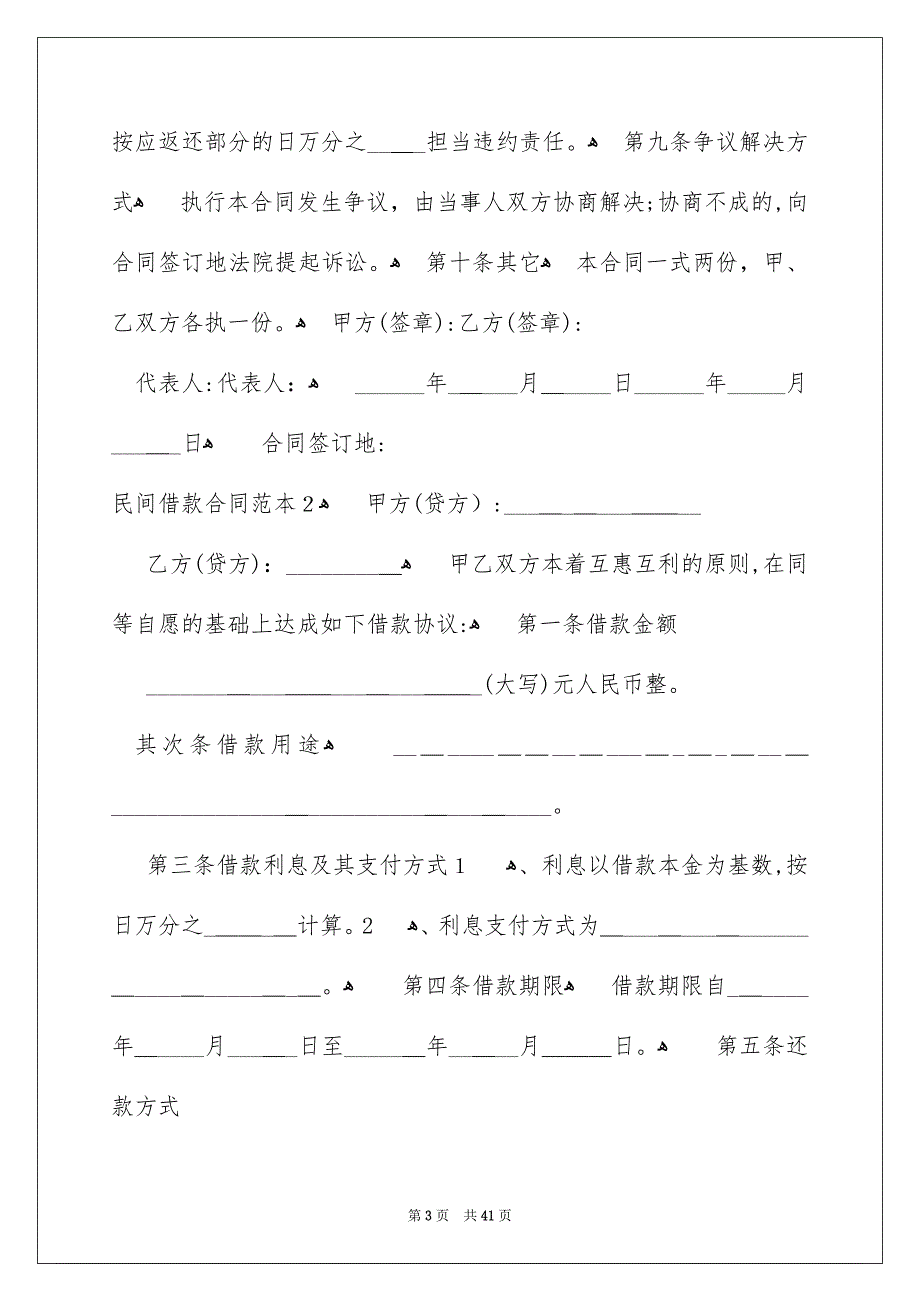 按应返还部分的日万分之_____担当违约责任。ﻫ 第九条争议解决方
式ﻫ 执行本合同发生争议，由当事人双方协商解决;协商不成的,向
合同签订地法院提起诉讼。ﻫ 第十条其它ﻫ 本合同一式两份，甲、
乙双方各执一份。ﻫ 甲方(签章):乙方(签章):
代表人:代表人：ﻫ ______年______月______日______年_____月
______日ﻫ 合同签订地:
民间借款合同范本2ﻫ 甲方(贷方）:_________________
乙方(贷方)：__________ﻫ 甲乙双方本着互惠互利的原则,在同
等自愿的基础上达成如下借款协议:ﻫ 第一条借款金额
_____________________________(大写)元人民币整。
其次条借款用途ﻫ ______________________________
______________________________________。
第三条借款利息及其支付方式1 ﻫ、利息以借款本金为基数,按
日万分之________计算。2 ﻫ、利息支付方式为__________________
__________________。ﻫ 第四条借款期限ﻫ 借款期限自_______
年______月______日至_______年______月______日。ﻫ 第五条还
款方式
第3页 共41页